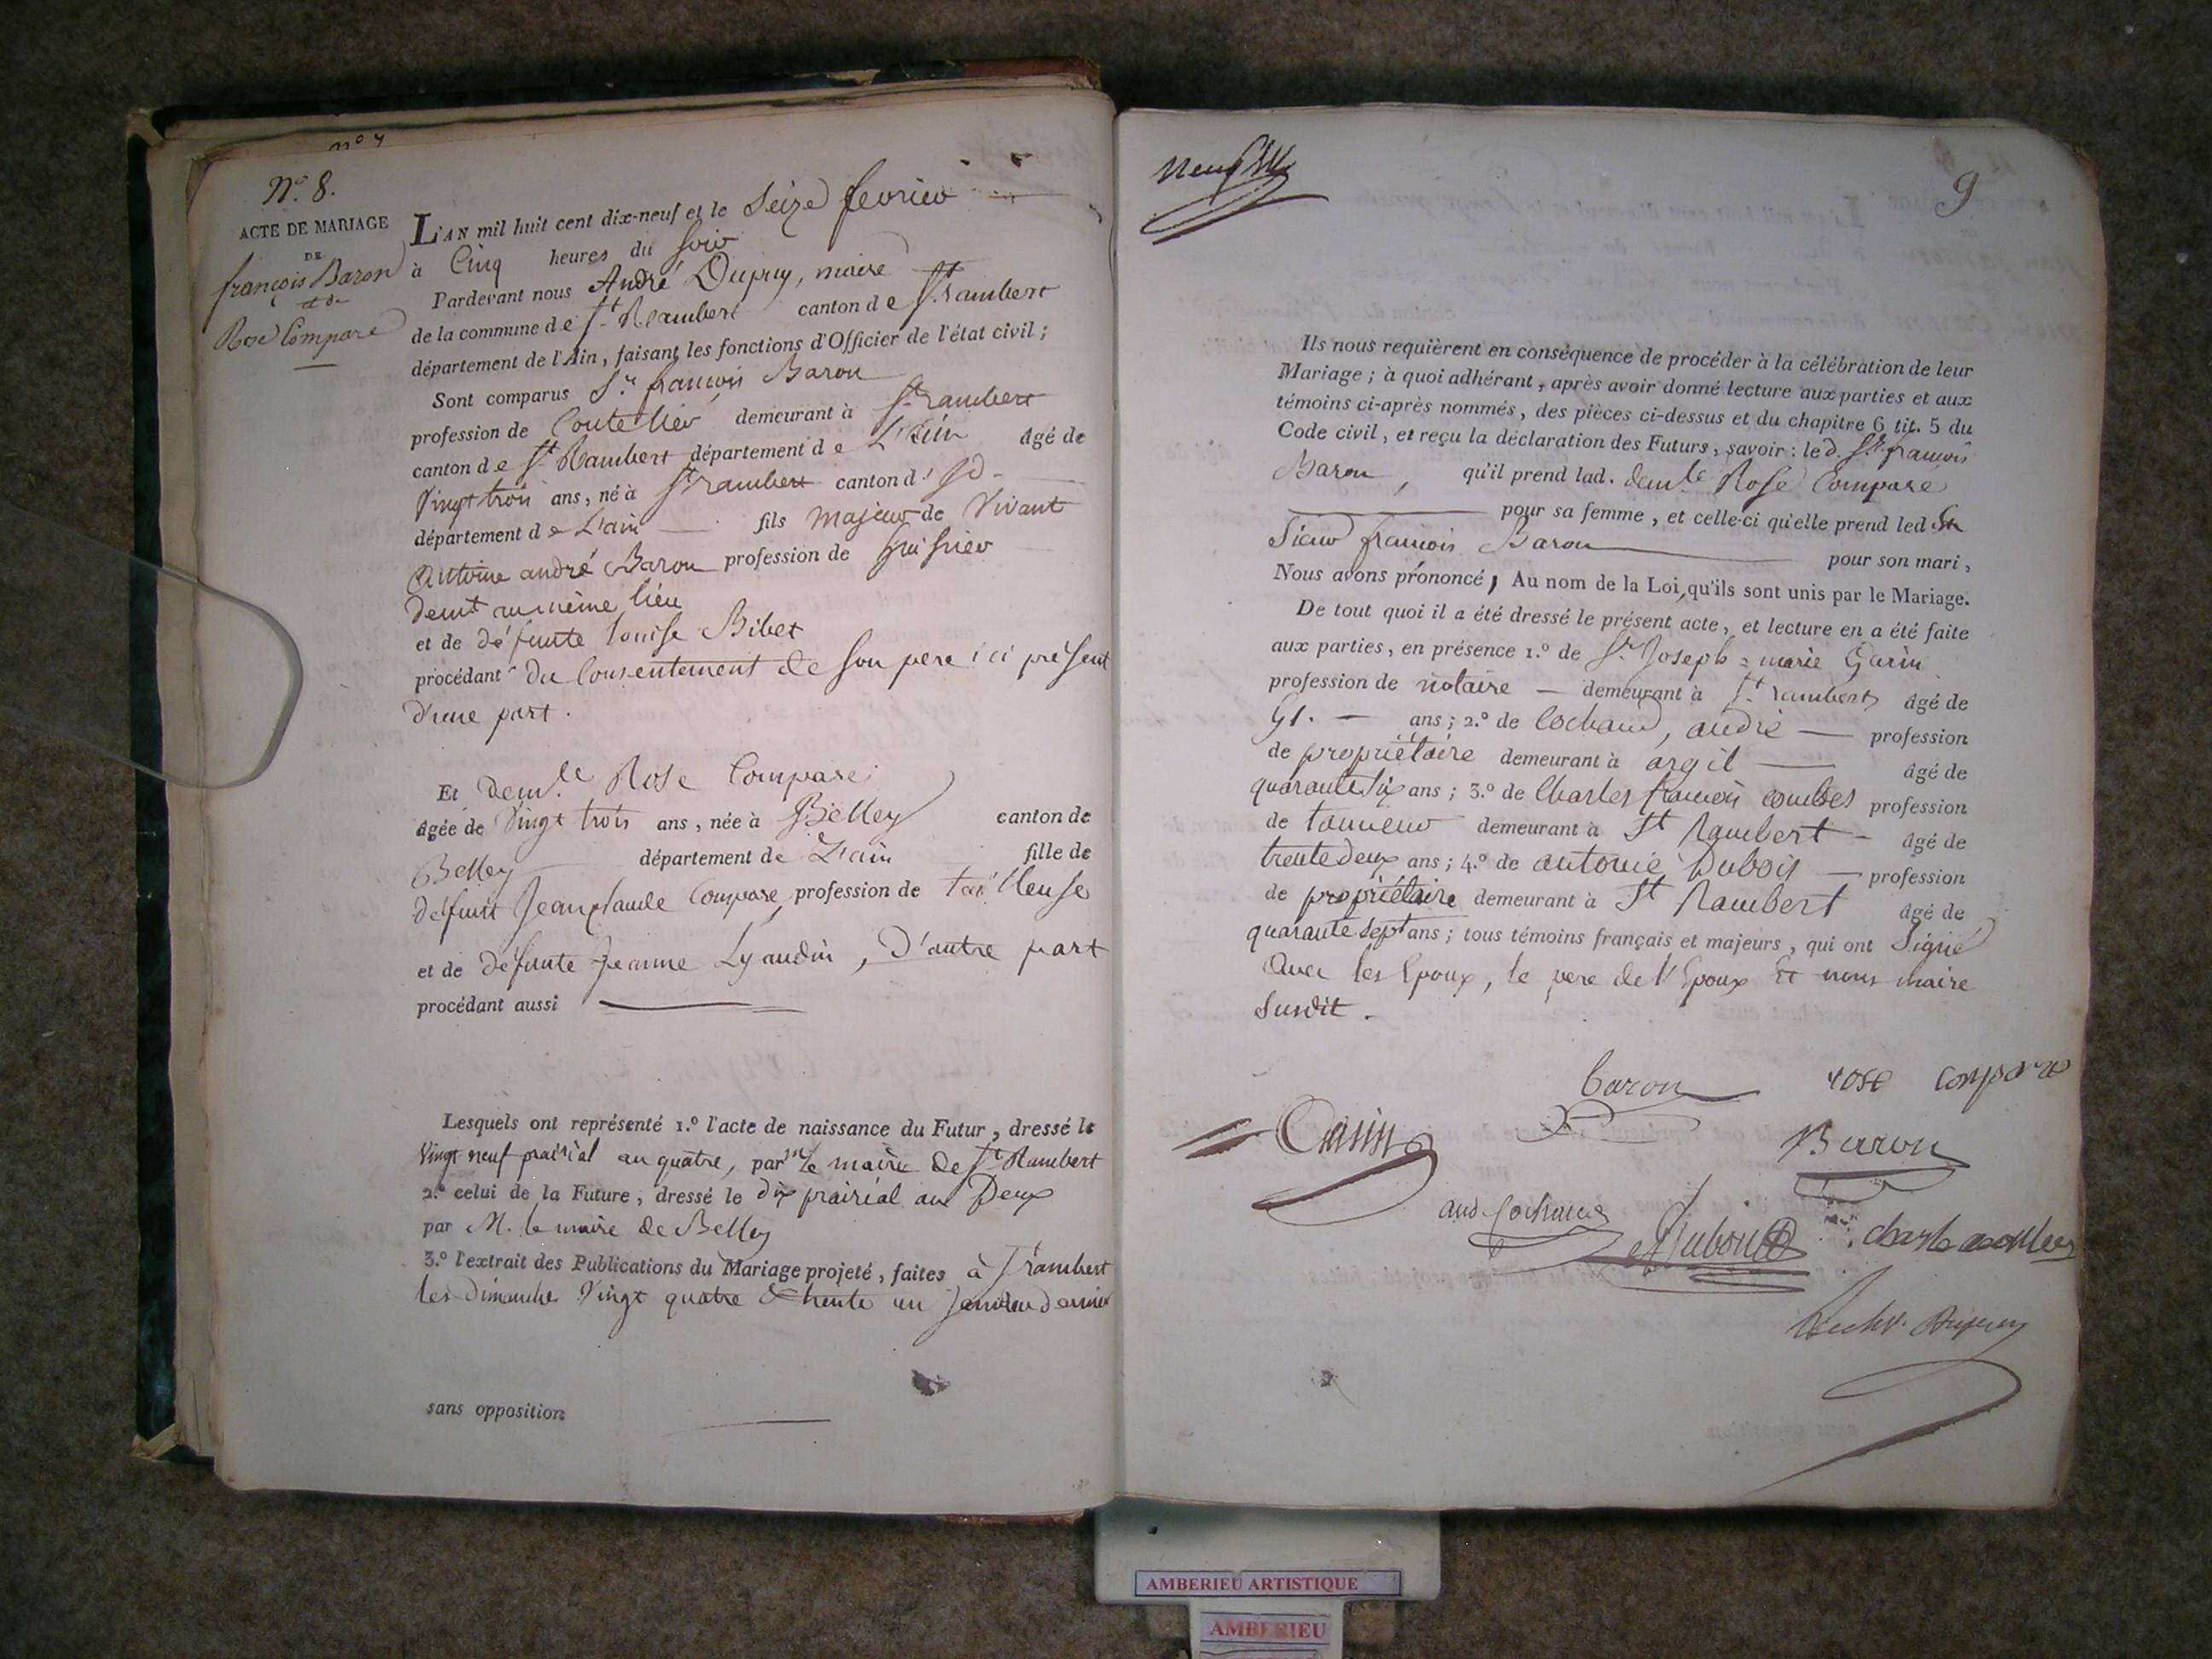 n° 7
N.° 8.
ACTE DE MARIAGE
DE
françois Baron
et de
Rose Compare
L'AN mil huit cent dix-neuf et le Seize fevrier
à Cinq heures du soir
Pardevant nous André Dupuy, maire
de la commune de St. Rambert canton de St. rambert
département de l'Ain, faisant les fonctions d'Officier de l'état civil ;
Sont comparus Sr. françois Baron
profession de Coutellier demeurant à St. rambert
canton de St. Rambert département de L'Ain âgé de
Vingt trois ans, né à St rambert canton d' id
département de L'ain fils majeur de Vivant
Antoine andré Baron profession de huissier
demt au même lieu
et de défunte Louise Bibet
procédant du Consentement de Son pere ici présent
D'une part.
Et Demlle Rose Compare
âgée de Vingt trois ans, née à Belley canton de
Belley département de L'ain fille de
défunt Jean claude Compare, profession de tailleuse
et de défunte Jeanne Lyaudin, D'autre part
procédant aussi
Lesquels ont représenté 1.° l'acte de naissance du Futur, dressé le
Vingt neuf prairial an quatre, par Mr le maire de St. Rambert
2.° celui de la Future, dressé le dix prairial an Deux
par M. le maire de Belley
3.° l'extrait des Publications du Mariage projeté, faites à St rambert
les Dimanches Vingt quatre & trente un Janvier dernier
sans opposition
neuf
9
Ils nous requièrent en conséquence de procéder à la célébration de leur
Mariage ; à quoi adhérant, après avoir donné lecture aux parties et aux
témoins ci-après nommés, des pièces ci-dessus et du chapitre 6 tit. 5 du
Code civil, et reçu la déclaration des Futurs, savoir : le d. Sr françois
Baron, qu'il prend lad. demlle Rose Compare
pour sa femme, et celle-ci qu'elle prend led Sr
Sieur françois Baron pour son mari,
Nous avons prononcé, Au nom de la Loi, qu'ils sont unis par le Mariage.
De tout quoi il a été dressé le présent acte, et lecture en a été faite
aux parties, en présence 1.° de Sr. Joseph = marie Garin
profession de notaire — demeurant à St. rambert âgé de
51. — ans ; 2.° de Cochaud, andré — profession
de propriétaire demeurant à argil — âgé de
quarante six ans ; 3.° de Charles françois combes profession
de tanneur demeurant à St Rambert — âgé de
trente deux ans ; 4.° de antoine Dubois — profession
de propriétaire demeurant à St Rambert âgé de
quarante sept ans ; tous témoins français et majeurs, qui ont Signé
Avec les Epoux, le pere de l'Epoux Et nous maire
susdit.
baron rose compare
Garin Baron
and. Cochaud Dubois charle combes
Dupuy
AMBERIEU ARTISTIQUE
AMBERIEU